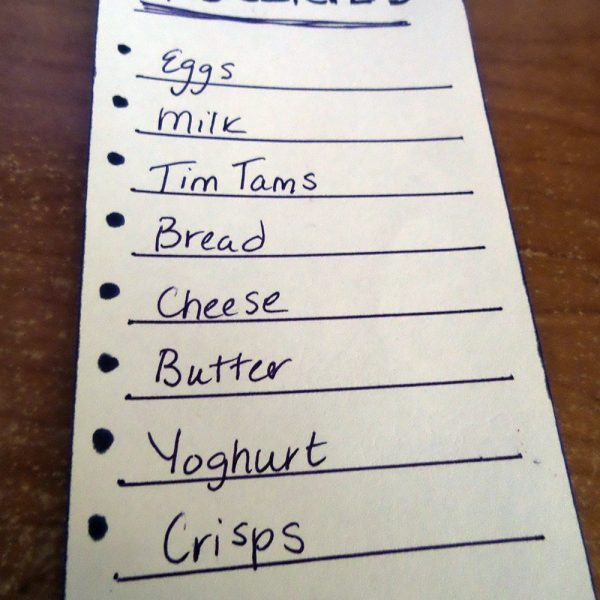 Eggs
Milk
Tim Tams
Bread
Cheese
Butter
Yoghurt
Crisps